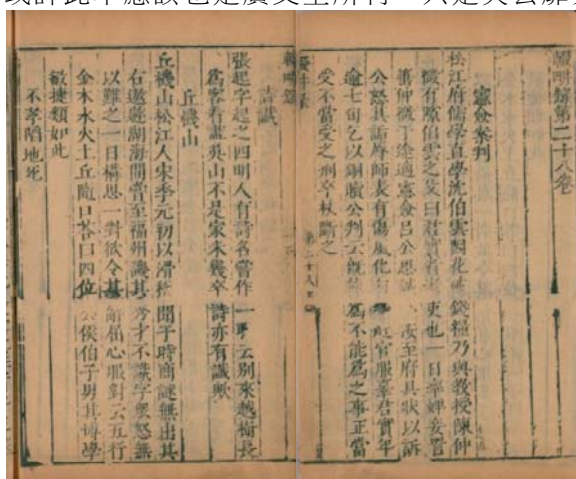 輟耕錄第二十八卷
憲僉案判
松江府儒學直學沈伯雲因花破錢糧乃與教授陳仲
微有隙伯雲之父曰君實者吏也一日率婢妾詈
辱仲微于途適憲僉呂公思誠按至府具狀以訴
公怒其詬辱師表有傷風化官服辜君實年
逾七旬乞以銅贖公判云既能為不能為之事正當
受不當受之刑卒杖斷之
讖
張起字起之四明人有詩名嘗作一聯云別來越樹長
為客看盡吳山不是家未幾卒詩亦有讖歟
丘機山
丘機山松江人宋季元初以滑稽聞于時商謎無出其
右遨遊湖海間嘗至福州譏其秀才不識字衆怒無
以難之一日構思一對欲令其辭屈心服對云五行
金木水火土丘隨口荅曰四位公侯伯子男其博學
敏捷類如此
不孝陷地死